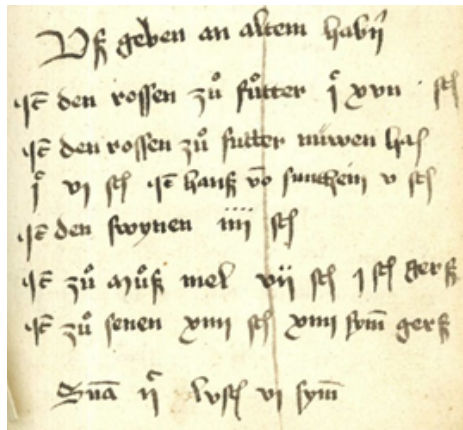 Vß geben an altem habern
Itē den rossen zů fůtter iͨ xvii sch
Itē den rossen zů futter nuwen hab
iͨ vi sch Itē hanß vō sunthein v sch
Itē den swynen iiii sch
Itē zů můß mel vii sch i sch gerst
Itē zů senen xiiii sch xiiii sym̄ gerst
Sum̄a iiͨ lv sch vi sym̄